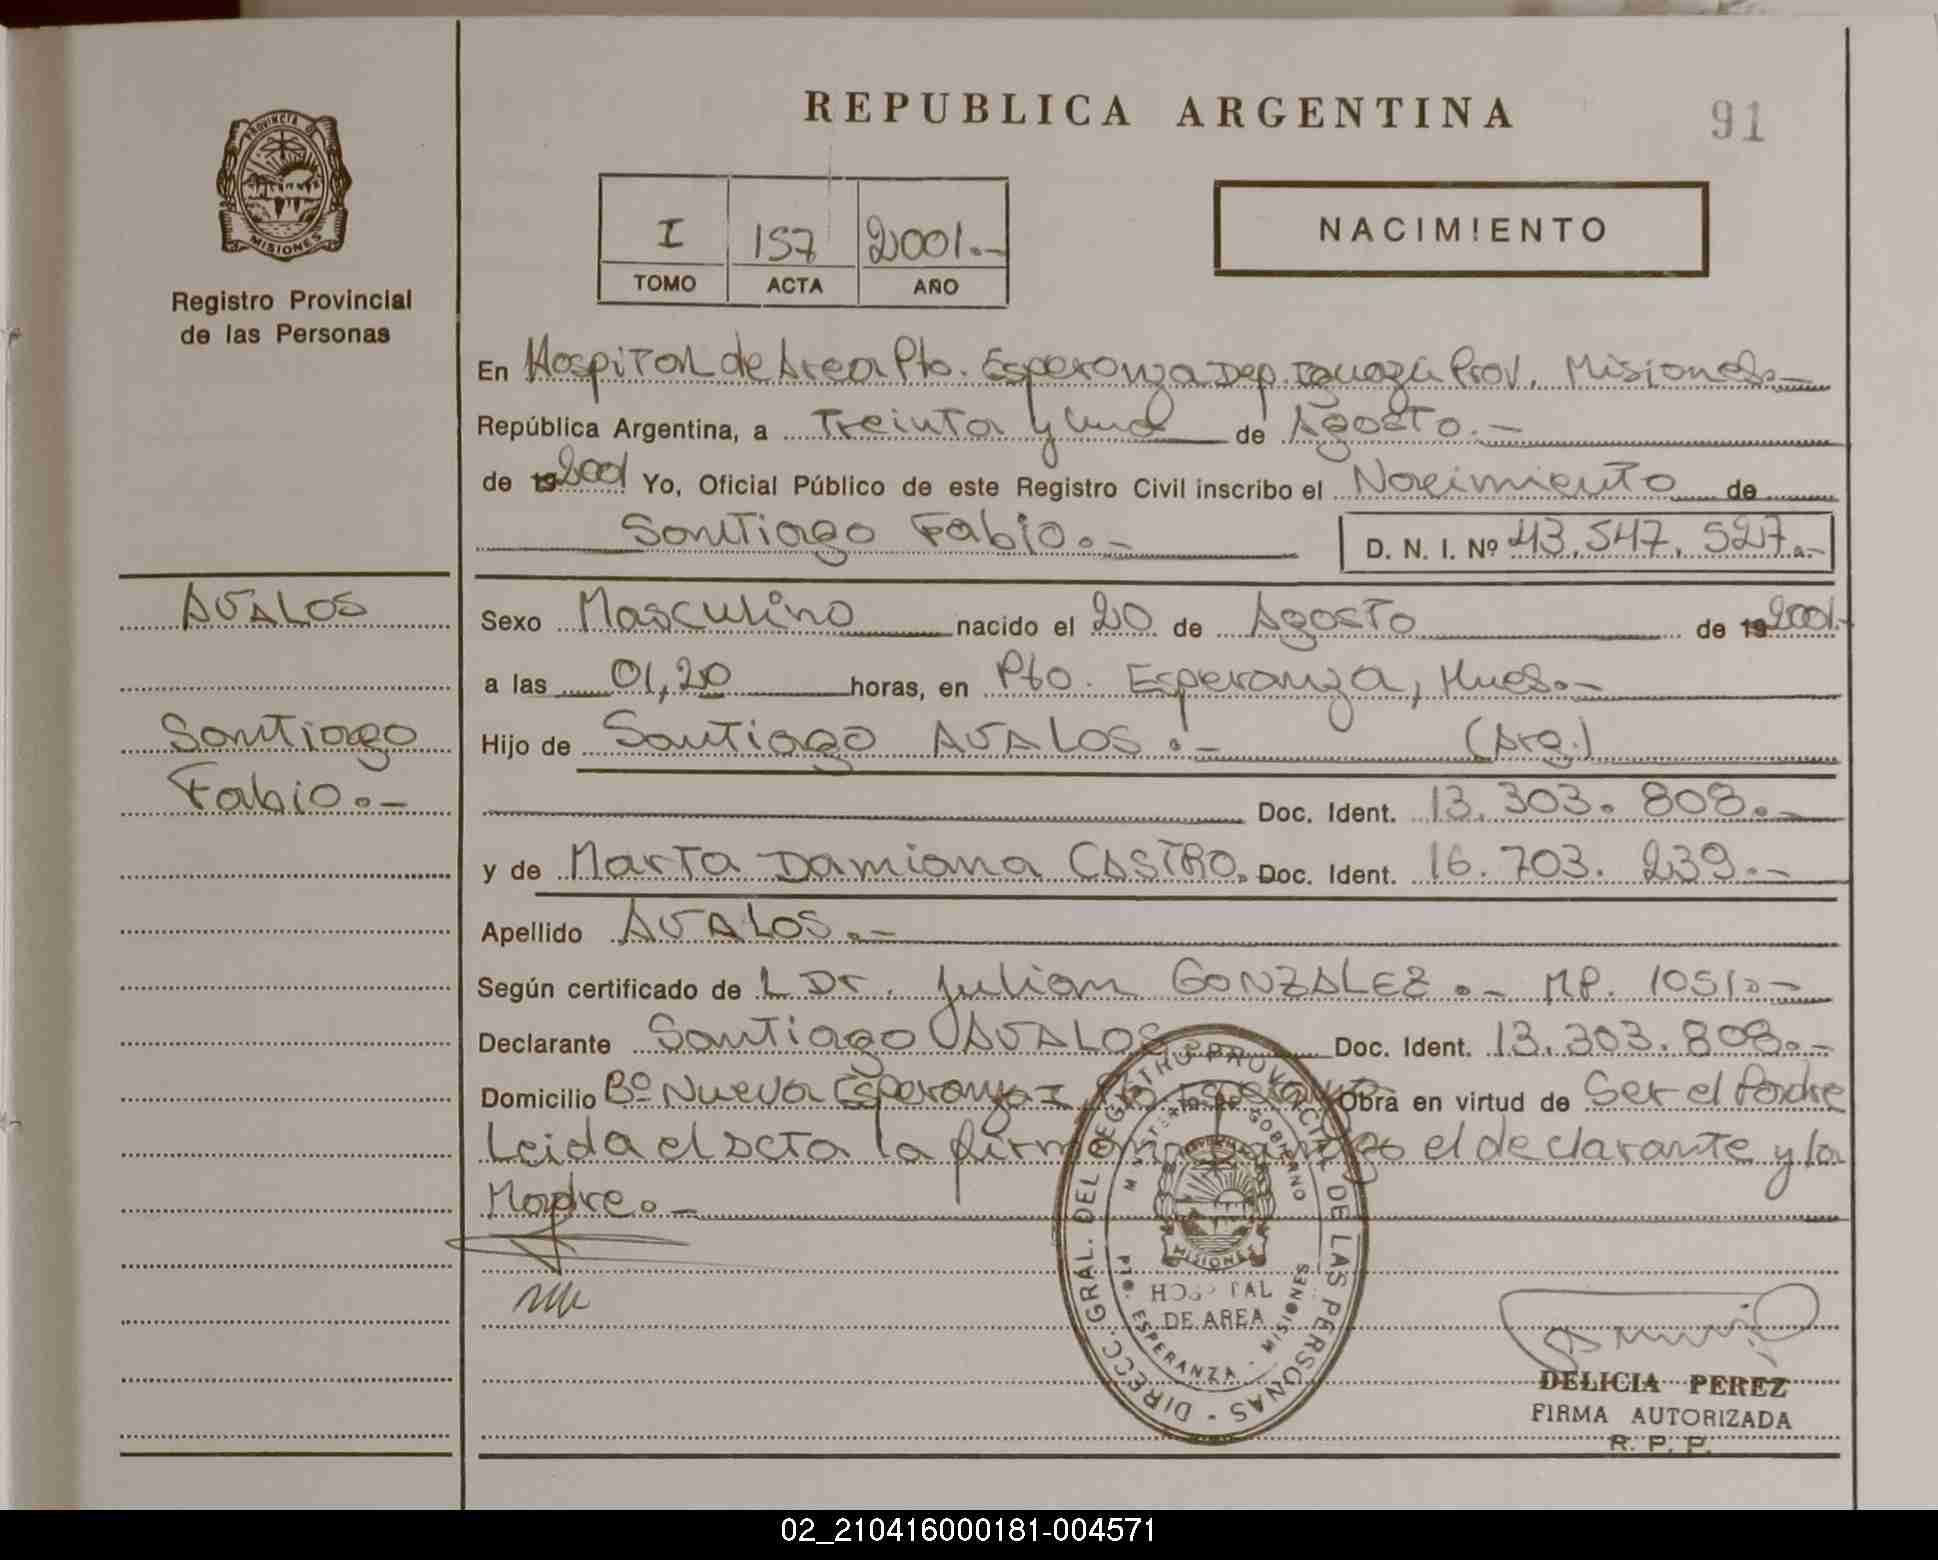 REPUBLICA ARGENTINA
91
PROVINCIA DE
MISIONES
Registro Provincial
de las Personas
I 157 2001.-
TOMO ACTA AÑO
NACIMIENTO
En Hospital de Area Pto. Esperanza Dep. Iguazú Prov. Misiones.-
República Argentina, a Treinta y uno de Agosto.-
de 192001 Yo, Oficial Público de este Registro Civil inscribo el Nacimiento de
Santiago Fabio.- D. N. I. Nº 43.547.527.-
AVALOS
Santiago
Fabio.-
Sexo Masculino nacido el 20 de Agosto de 192001.-
a las 01,20 horas, en Pto. Esperanza, Mnes.-
Hijo de Santiago AVALOS.- (Arg.)
Doc. Ident. 13.303.808.-
y de Marta Damiana CASTRO. Doc. Ident. 16.703.239.-
Apellido AVALOS.-
Según certificado de L Dr. Julian GONZALEZ.- MP. 1051.-
Declarante Santiago AVALOS Doc. Ident. 13.303.808.-
Domicilio Bº Nueva Esperanza I, Pto. Esperanza Obra en virtud de Ser el Padre
Leida el Acta la firman conmigo el declarante y la
Madre.-
DIRECC. GRAL. DEL REGISTRO PROVINCIAL DE LAS PERSONAS
MINISTERIO DE GOBIERNO
MISIONES
HOSPITAL
DE AREA
PTO. ESPERANZA - MISIONES
DELICIA PEREZ
FIRMA AUTORIZADA
R. P. P.
02_210416000181-004571